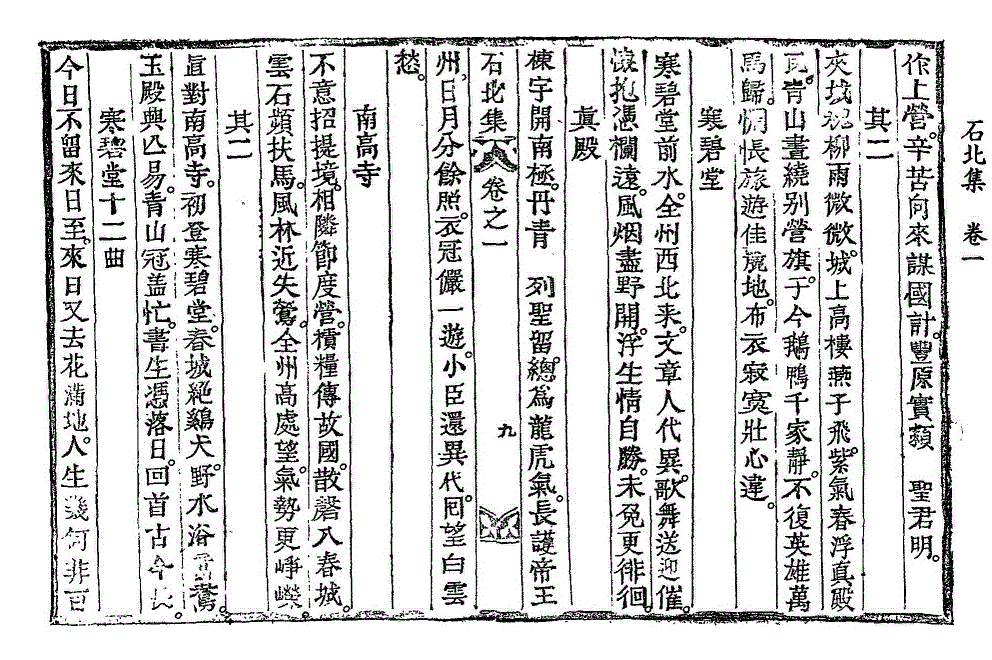 石北集 卷一
作上營。辛苦向來謀國計。豐原實頼 聖君明。
其二
夾城槐柳雨微微。城上高樓燕子飛。紫氣春浮真殿
瓦。青山晝繞別營旗。于今鵝鴨千家靜。不復英雄萬
馬歸。惆悵旅遊佳麗地。布衣寂寞壯心違。
寒碧堂
寒碧堂前水。全州西北来。文章人代異。歌舞送迎催。
懷抱憑欄遠。風烟盡野開。浮生情自勝。未免更徘徊。
眞殿
棟宇開南極。丹青 列聖留。總爲龍虎氣。長護帝王
石北集 卷之一 九
州。日月分餘照。衣冠儼一遊。小臣還異代。回望白雲
愁。
南高寺
不意招提境。相隣節度營。積糧傳故國。散磬入春城。
雲石頻扶馬。風林近失鶯。全州高處望。氣勢更崢嶸。
其二
直對南高寺。初登寒碧堂。春城絕鷄犬。野水浴鴦。
玉殿興亡易。青山冠盖忙。書生憑落日。回首古今長。
寒碧堂十二曲
今日不留來日至。來日又去花滿地。人生幾何非百